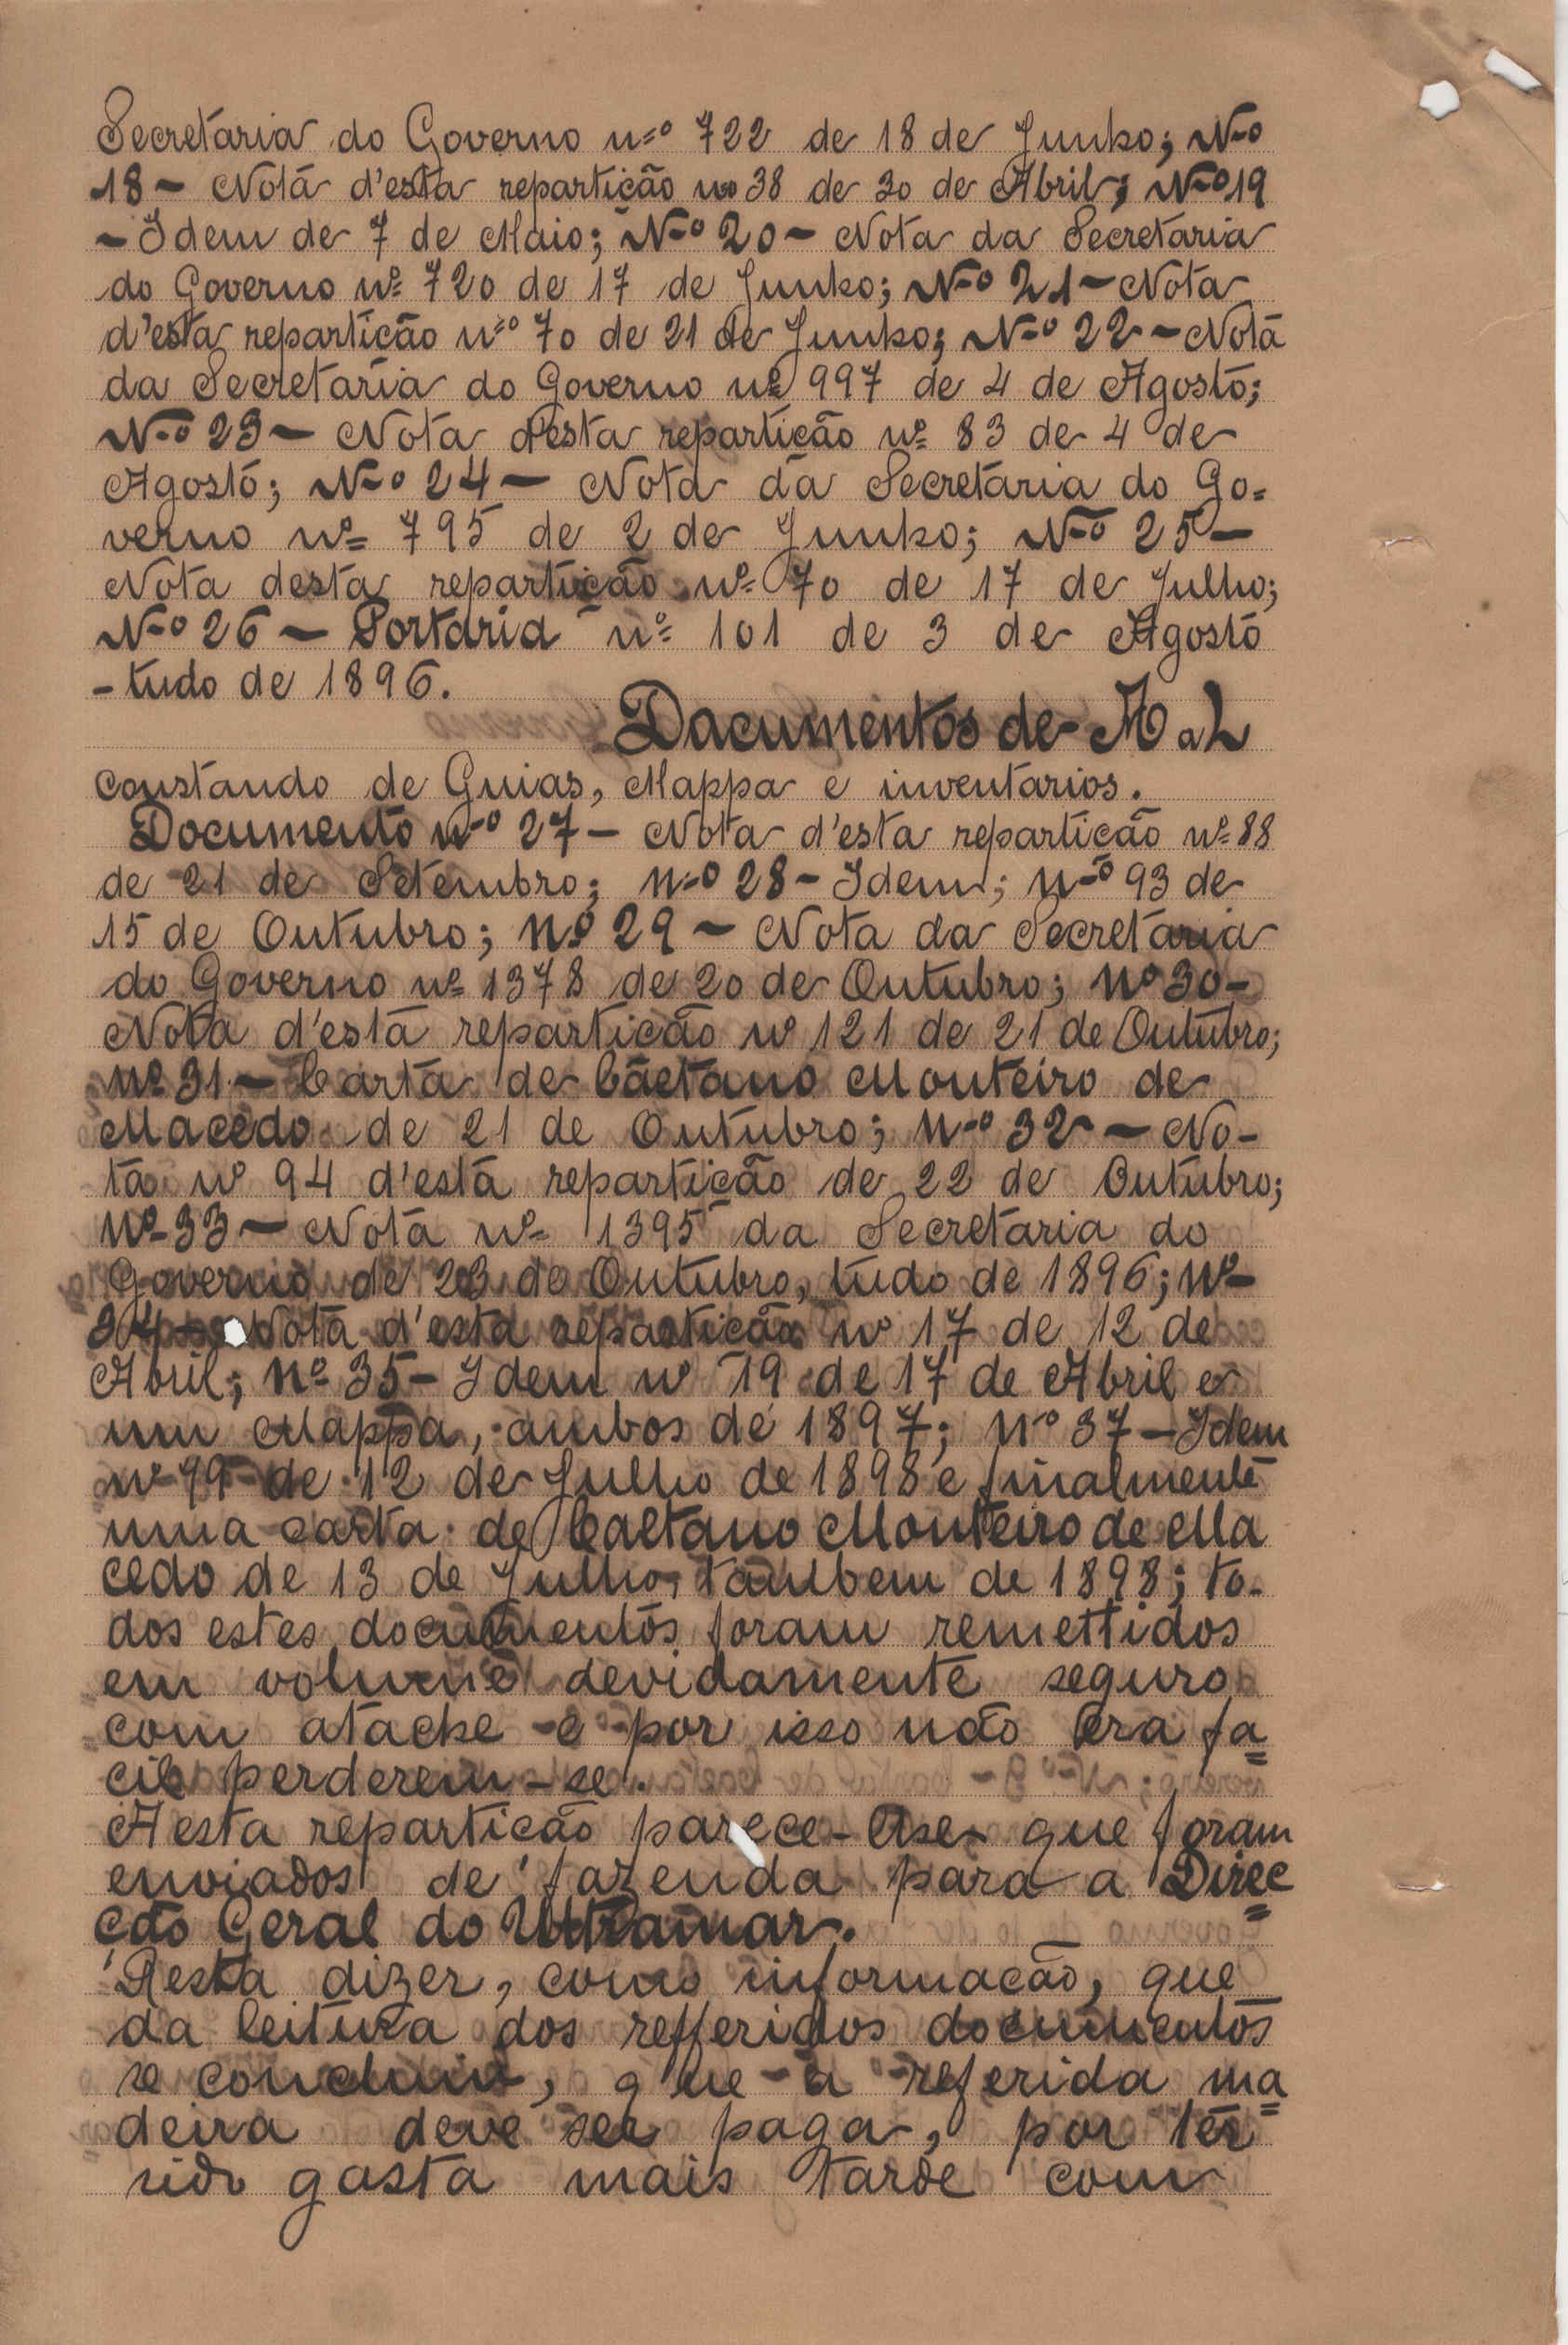 Secretaria do Governo n.o 722 de 18 de Junho; N.o
18 - Nota d'esta repartição no 38 de 30 de Abril; N.o 19
- Idem de 7 de Maio; N.o 20 - Nota da Secretaria
do Governo no 720 de 17 de Junho; N.o 21 - Nota
d'esta repartição n.o 70 de 21 de Junho; N.o 22 - Nota
da Secretaria do Governo no 997 de 4 de Agosto;
N.o 23 - Nota d'esta repartição no 83 de 4 de
Agosto; N.o 24 - Nota da Secretaria do Go=
verno no 795 de 2 de Junho; N.o 25 -
Nota desta repartição no 70 de 17 de Julho;
N.o 26 - Portaria no 101 de 3 de Agosto
- tudo de 1896.
Documentos de a L
constando de Guias, Mappa e inventarios.
Documento n.o 27 - Nota d'esta repartição no 88
de 21 de Setembro; n.o 28 - Idem; n.o 93 de
15 de Outubro; n.o 29 - Nota da Secretaria
do Governo no 1378 de 20 de Outubro; no 30 -
Nota d'esta repartição no 121 de 21 de Outubro;
no 31 - Carta de Caetano Monteiro de
Macedo de 21 de Outubro; n.o 32 - No-
ta no 94 d'esta repartição de 22 de Outubro;
no 33 - Nota no 1395 da Secretaria do
Governo de 23 de Outubro, tudo de 1896; no
34 Nota d'esta repartição no 17 de 12 de
Abril; no 35 - Idem no 19 de 17 de Abril e
um Mappa, ambos de 1897; no 37 - Idem
no de 12 de Julho de 1898 e finalmente
uma carta de Caetano Monteiro de Ma
cedo de 13 de Julho, tambem de 1898; to-
dos estes documentos foram remettidos
em volume devidamente seguro
com atache e por isso não era fa=
cil perderem-se.
A esta repartição parece-lhe que foram
enviados de fazenda para a Direc=
ção Geral do Ultramar.
Resta dizer, como informação, que
da leitura dos refferidos documentos
se concluiu, que a referida ma=
deira deve ser paga, por ter
sido gasta mais tarde com